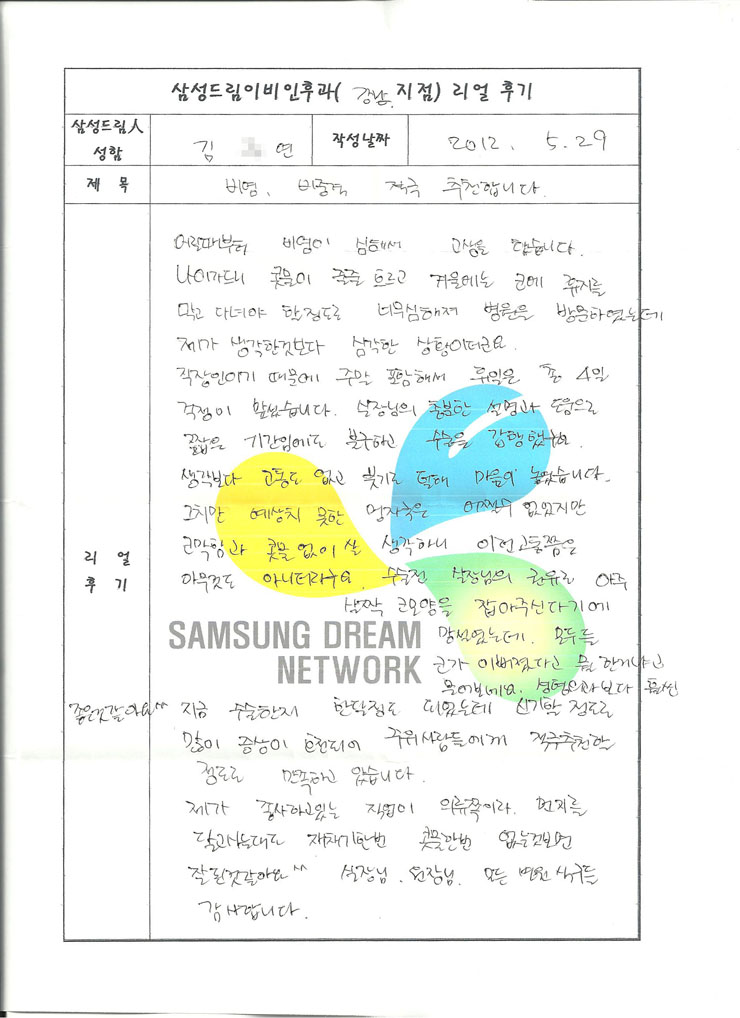 삼성드림이비인후과( 강남 지점) 리얼 후기
삼성드림人
성함
김 연
작성날짜
2012. 5. 29
제 목
비염, 비중격 적극 추천합니다.
리 얼
후 기
어릴때부터 비염이 심해서 고생을 많습니다.
나이가드니 콧물이 줄줄 흐르고 겨울에는 코에 휴지를
막고 다녀야 할정도로 너무심해져 병원을 방문하였는데
제가 생각한것보다 심각한 상황이더군요.
직장인이기 때문에 주말 포함해서 휴일은 총 4일
걱정이 앞섰습니다. 실장님의 충분한 설명과 도움으로
짧은 기간임에도 불구하고 수술을 감행했구요
생각보다 고통도 없고 붓기도 덜해 마음이 놓였습니다.
그치만 예상치 못한 멍자국은 어쩔수 없었지만
코막힘과 콧물 없이 살 생각하니 이런고통쯤은
아무것도 아니더라구요. 수술전 실장님의 권유로 아주
살짝 코모양을 잡아주신다기에
망설였는데. 모두들
코가 이뻐졌다고 뭘 한거냐고
물어보네요. 성형외과보다 훨씬
좋은것같아요^^ 지금 수술한지 한달정도 되었는데 신기할 정도로
많이 증상이 호전되어 주위사람들에게 적극추천할
정도로 만족하고 있습니다.
제가 종사하고있는 직업이 의류쪽이라. 먼지를
달고사는대도 재채기한번 콧물한번 없는것보면
잘된것같아요^^ 실장님. 원장님. 모든 병원 식구들
감사합니다.
SAMSUNG DREAM
NETWORK